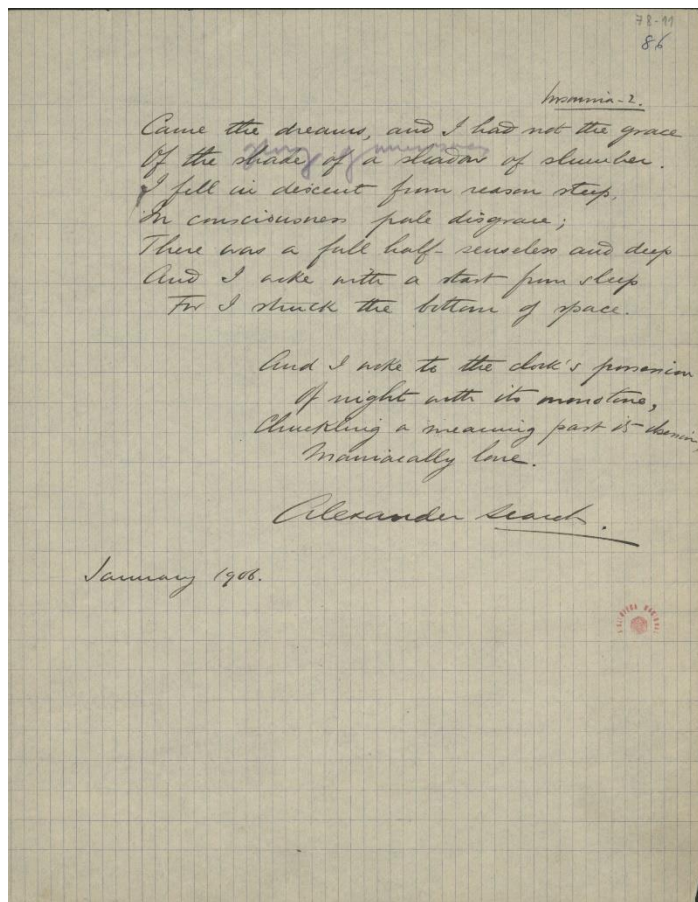 78-11
86
Insomnia-2.
Came the dreams, and I had not the grace
Of the shade of a shadow of slumber.
I fell in descent from reason steep,
In consciousness pale disgrace;
There was a fall half-senseless and deep
And I woke with a start from sleep
For I struck the bottom of space.
And I woke to the clock's possession
Of night with its monotone,
Chuckling a meaning past its
Maniacally lone.
Alexander Search.
January 1906.